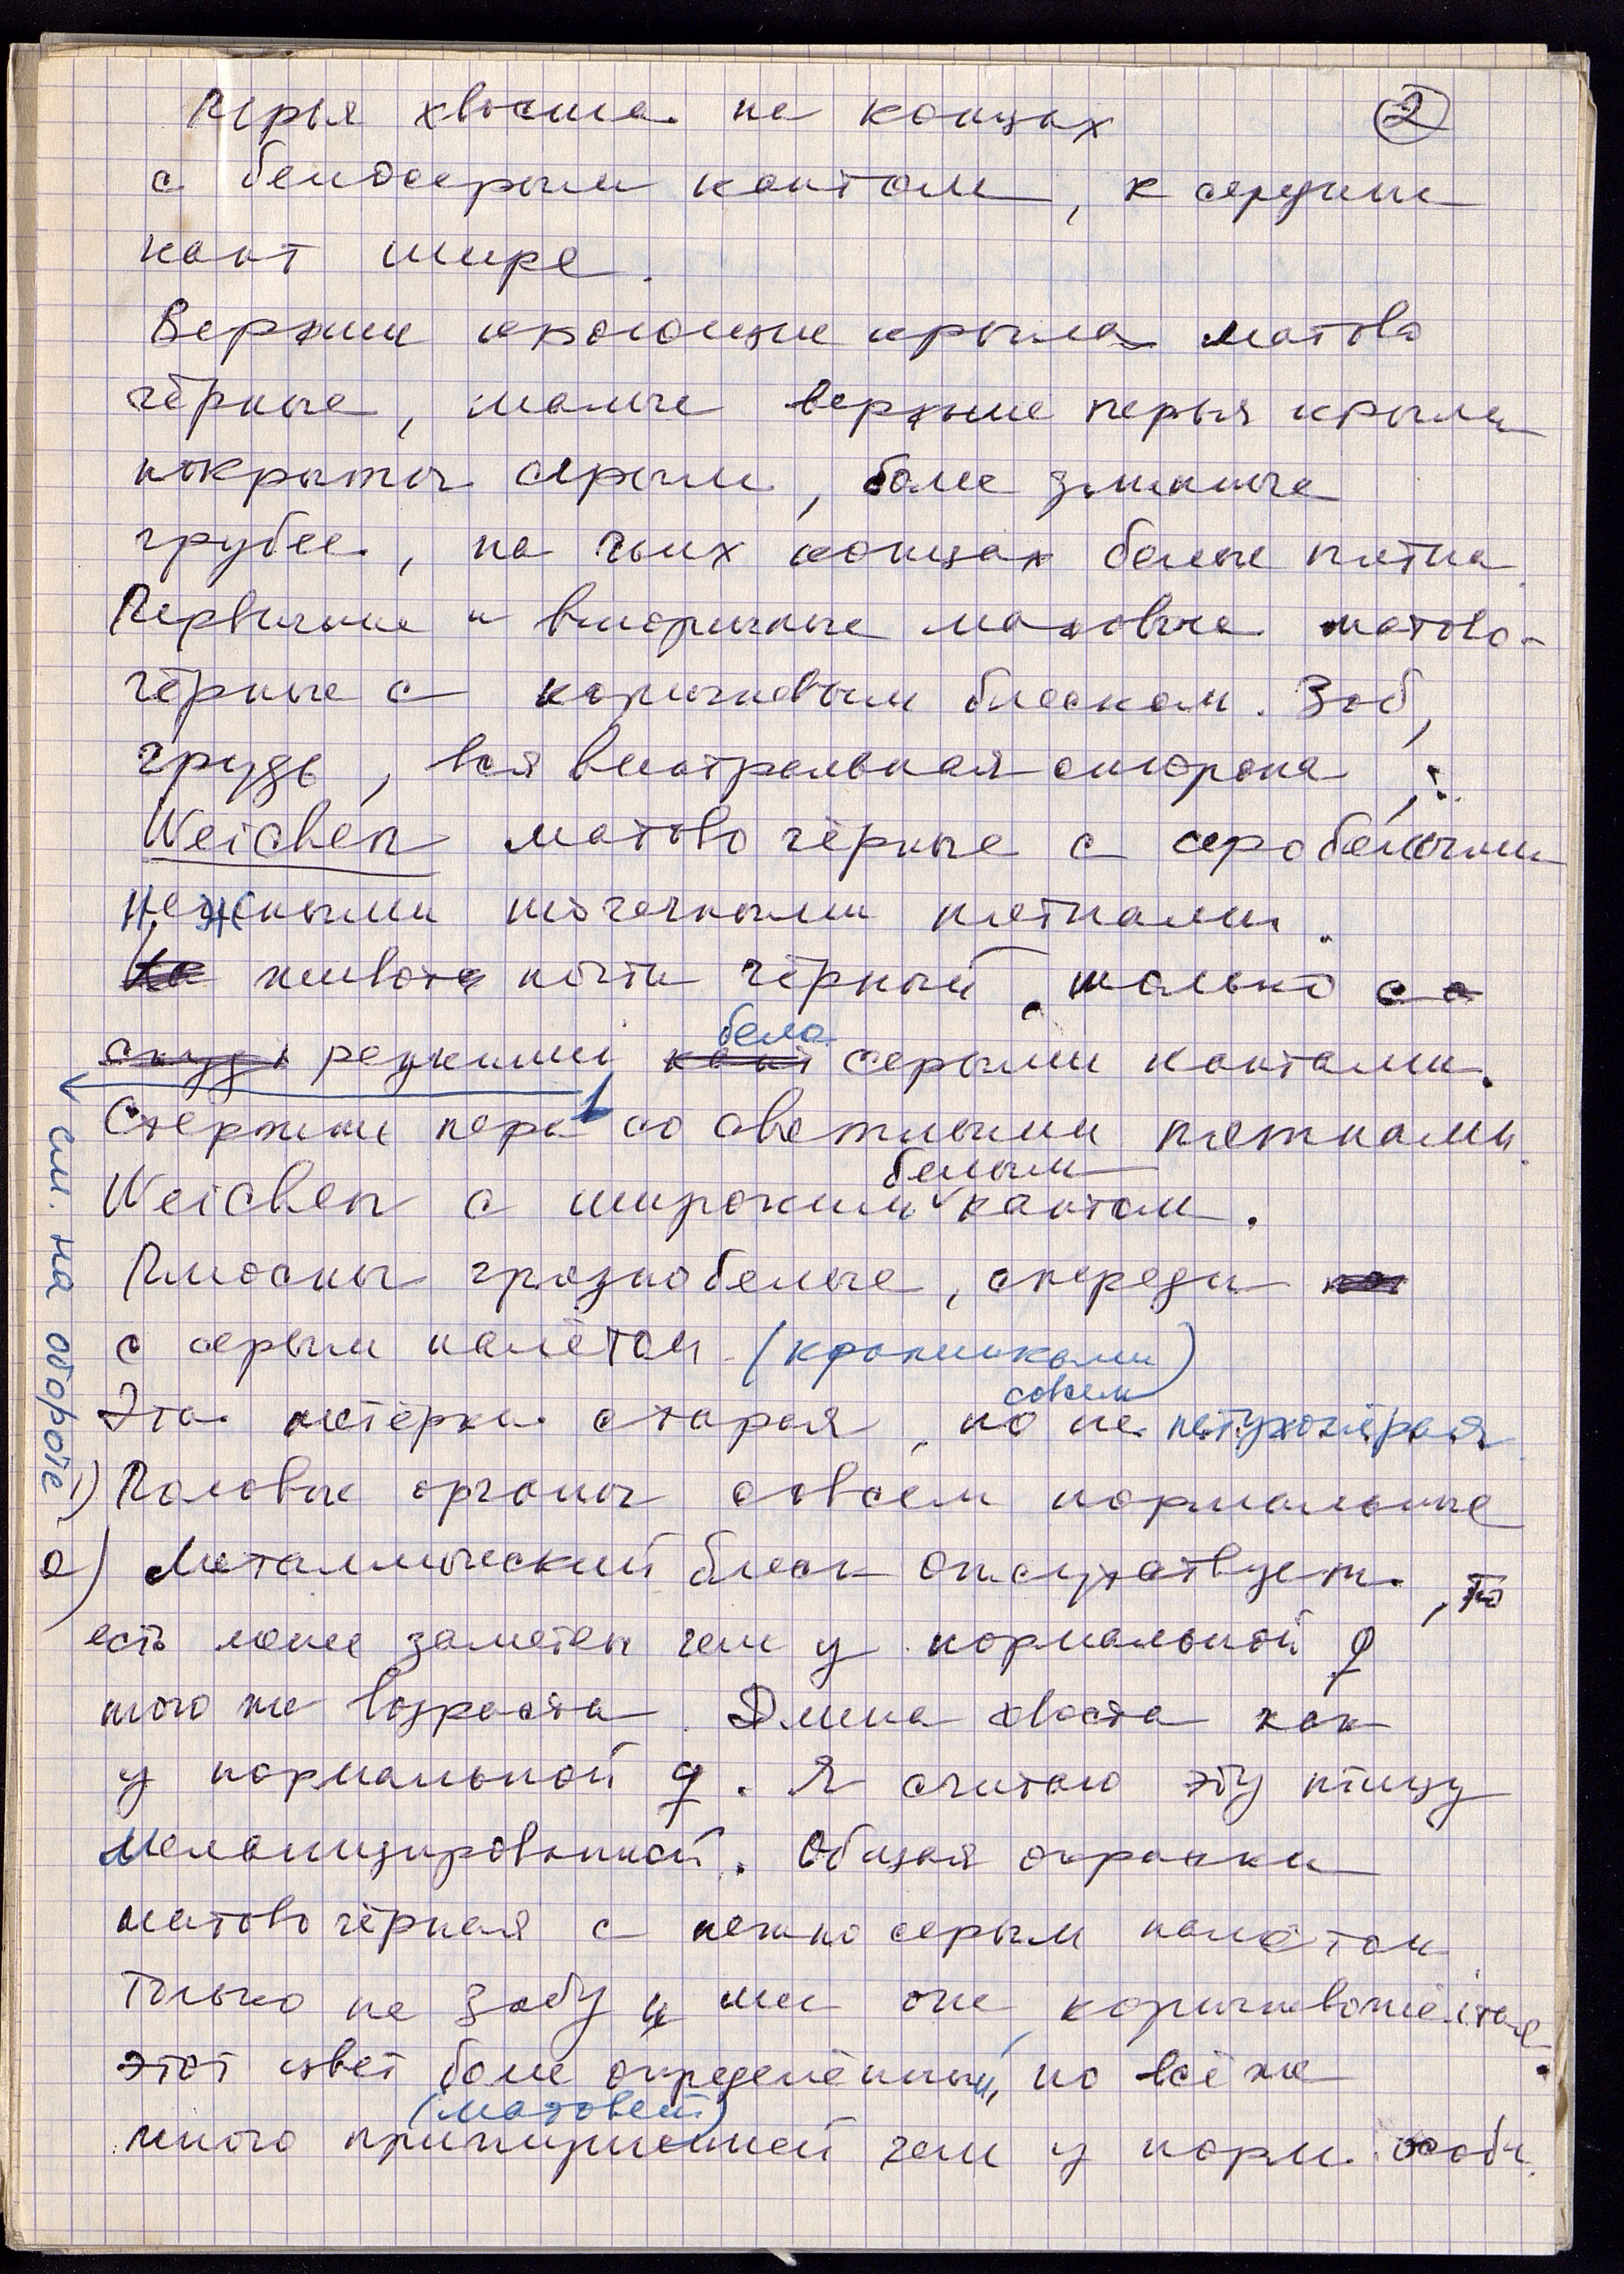 2
Перья хвоста на концах
с белосерым кантом, к середине
кант шире.
Верхние кроющие крыла матово
чёрные, малые верхние перья крыла
покрыты серым, более длинные
грубее, на чьих концах белые пятна
Первичные и вторичные маховые матово-
чёрные с коричневым блеском. Зоб,
грудь, вся вентральная сторона,
Weichen матово чёрные с серобелыми
нежными точечными пятнами.
На живота почти чёрный, только со
бело
редкими кант серыми кантами.
Стержни пера со светлыми пятнами.
белым
Weichen с широким кантом.
Плюсны грязнобелые, спереди
с серым налётом (крапинками)
совсем
Эта тетёрка старая, но не петухопёрая
1) Половые органы совсем нормальные
2) Металлический блеск отсутствует, то
есть менее заметен чем у нормальной ♀
того же возраста. Длина хвоста как
у нормальной ♀. Я считаю эту птицу
меланизированной. Общая окраска
матово чёрная с нежно серым налётом
только на зобу и шее она коричневожёлтая
этот цвет более определённый, но всё же
(матовей)
много приглушенней чем у норм. особи.
← см. на обороте